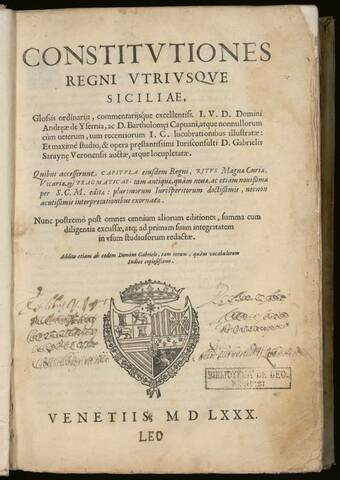 CONSTITVTIONES
REGNI VTRIVSQVE
SICILIAE,
Glosis ordinarijs, commentarijsque excellentiss. I. V. D. Domini
Andreæ de Ysernia, ac D. Bartholomei Capuani, atque nonnullorum
cùm veterum, tum recentiorum I. C. lucubrationibus illustratæ:
Et maximè studio, & opera præstantissimi Iurisconsulti D. Gabrielis
Saraynæ Veronensis auctæ, atque locupletatæ.
Quibus accesserunt, CAPITVLA eiusdem Regni, RITVS Magna Curia,
Vicaria, & PRAGMATICAE: tam antiqua, quàm noua, ac etiam nouissima
per S. C. M. edita: plurimorum Iurisperitorum doctissimis, necnon
acutissimis interpretationibus exornata.
Nunc postremò post omnes omnium aliorum editiones, summa cum
diligentia excussæ, atq; ad primum suum integritatem
in vsum studiosorum redactæ.
Additus etiam ab eodem Domino Gabriele, tam rerum, quàm vocabulorum
Index copiosissimus.
BIBLIOTECA DE LEO.
VENETIIS M D LXXX.
LEO